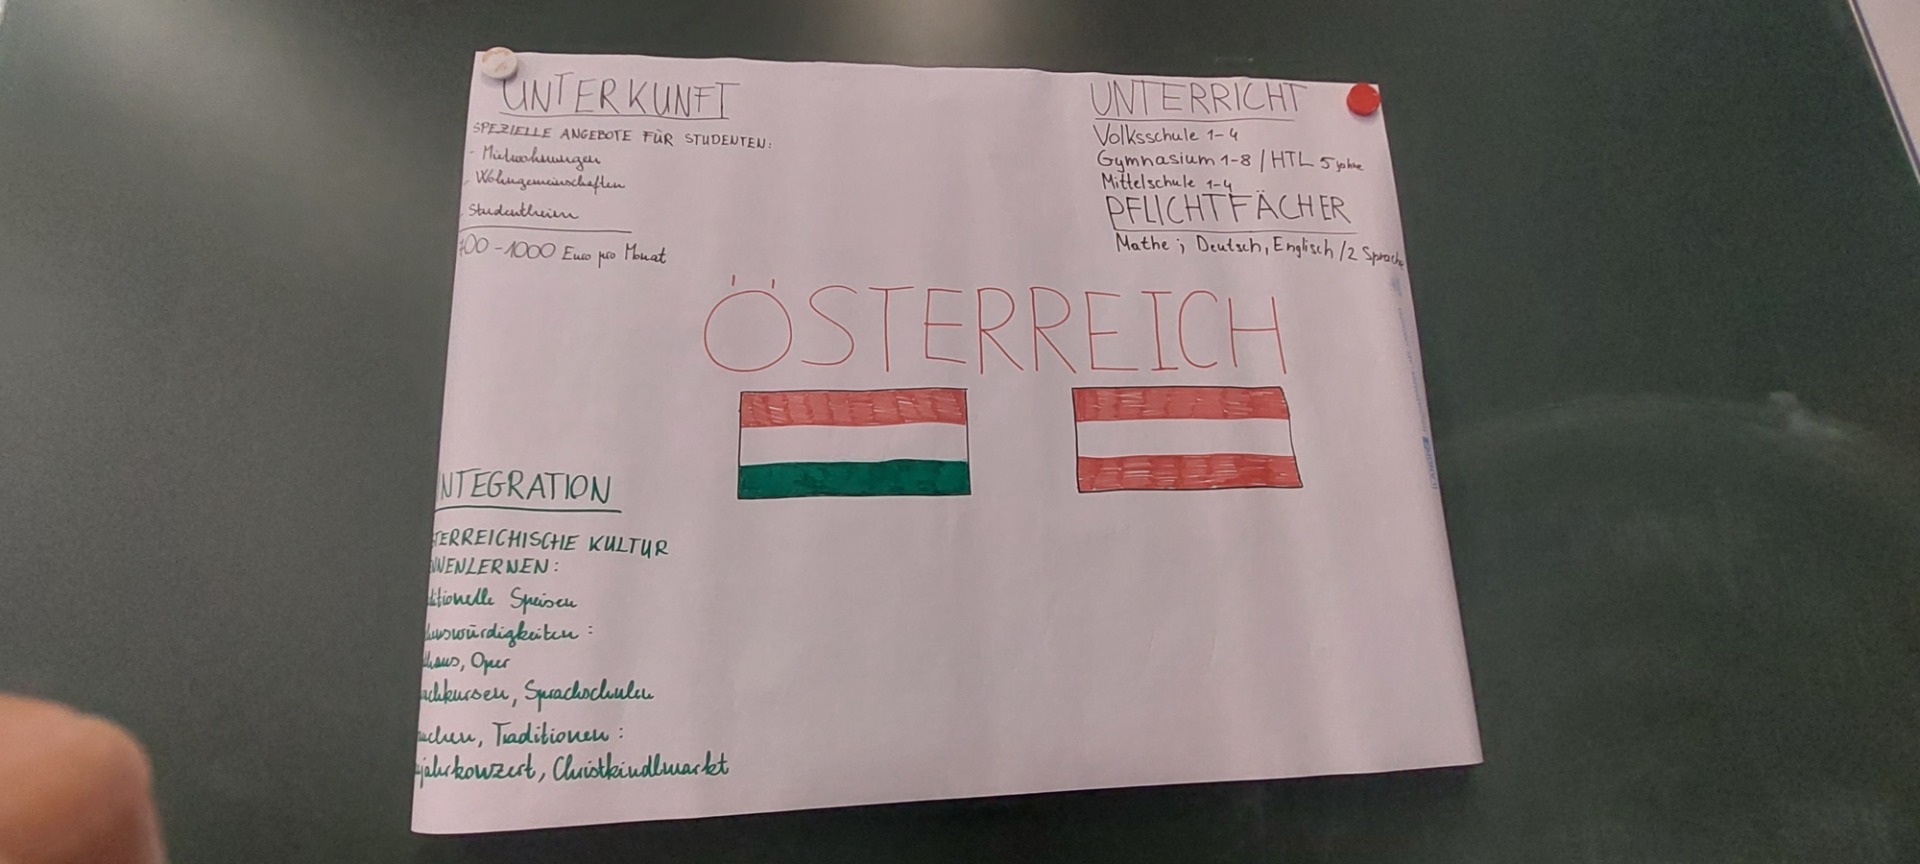 UNTERKUNFT
SPEZIELLE ANGEBOTE FÜR STUDENTEN:
- Mietwohnungen
- Wohngemeinschaften
- Studentheim
700-1000 Euro pro Monat
UNTERRICHT
Volksschule 1-4
Gymnasium 1-8 / HTL 5 jahre
Mittelschule 1-4
PFLICHTFÄCHER
Mathe ; Deutsch, Englisch /2 Sprache
ÖSTERREICH
NTEGRATION
TERREICHISCHE KULTUR
NNENLERNEN:
ditionelle Speisen
henswürdigkeiten:
thaus, Oper
achkursen, Sprachschulen
uchen, Traditionen:
ujahrkonzert, Christkindlmarkt